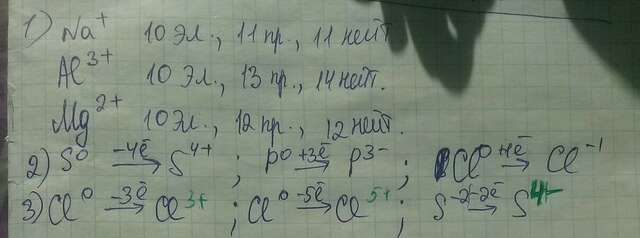 1) Na⁺ 10 эл., 11 пр., 11 нейт.
Al³⁺ 10 эл., 13 пр., 14 нейт.
Mg²⁺ 10 эл., 12 пр., 12 нейт.
2) S⁰ −4ē→ S⁴⁺ ; P⁰ +3ē→ P³⁻ ; Cl⁰ +1ē→ Cl⁻¹
3) Cl⁰ −3ē→ Cl³⁺ ; Cl⁰ −5ē→ Cl⁵⁺ ; S⁻² −2ē→ S⁴⁺